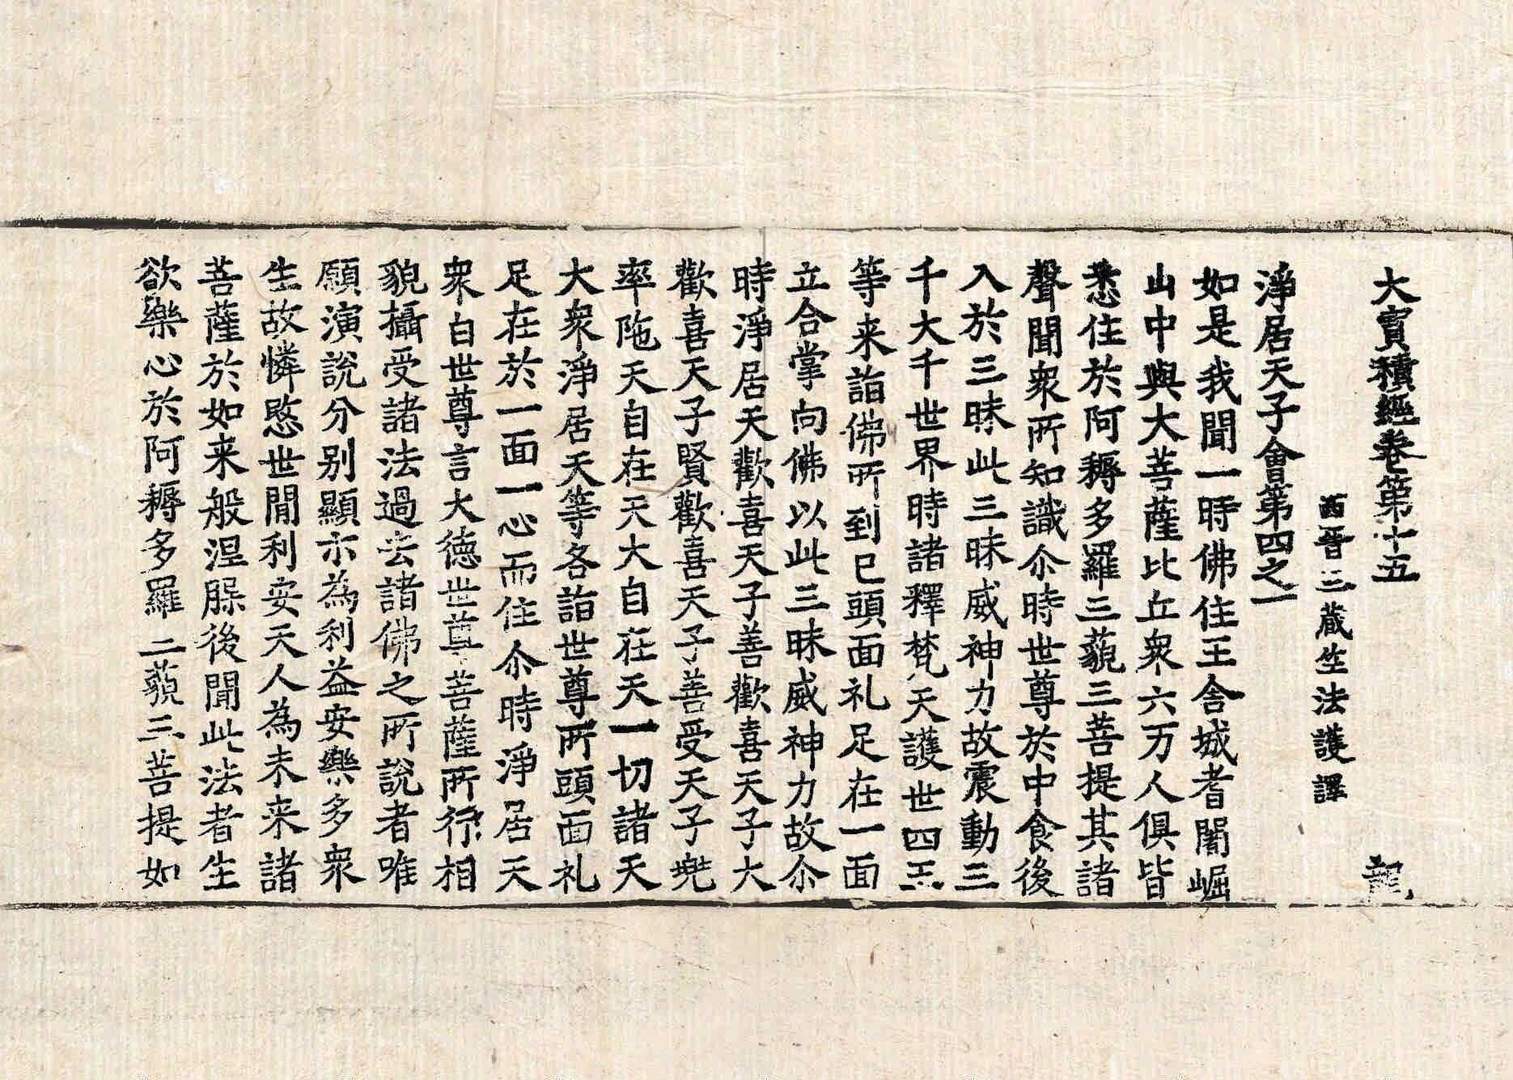 大寳積經卷第十五
龍
西晉三藏竺法護譯
淨居天子會第四之一
如是我聞一時佛住王舍城耆闍崛
山中與大菩薩比丘衆六万人俱皆
悉住於阿耨多羅三藐三菩提其諸
聲聞衆所知識尒時世尊於中食後
入於三昧此三昧威神力故震動三
千大千世界時諸釋梵天護世四王
等来詣佛所到已頭面礼足在一面
立合掌向佛以此三昧威神力故尒
時淨居天歡喜天子善歡喜天子大
歡喜天子賢歡喜天子善受天子兠
率陁天自在天大自在天一切諸天
大衆淨居天等各詣世尊所頭面礼
足在於一面一心而住尒時淨居天
衆白世尊言大德世尊菩薩所行相
貌攝受諸法過去諸佛之所說者唯
願演說分別顯示為利益安樂多衆
生故憐愍世間利安天人為未来諸
菩薩於如来般涅槃後聞此法者生
欲樂心於阿耨多羅三藐三菩提如